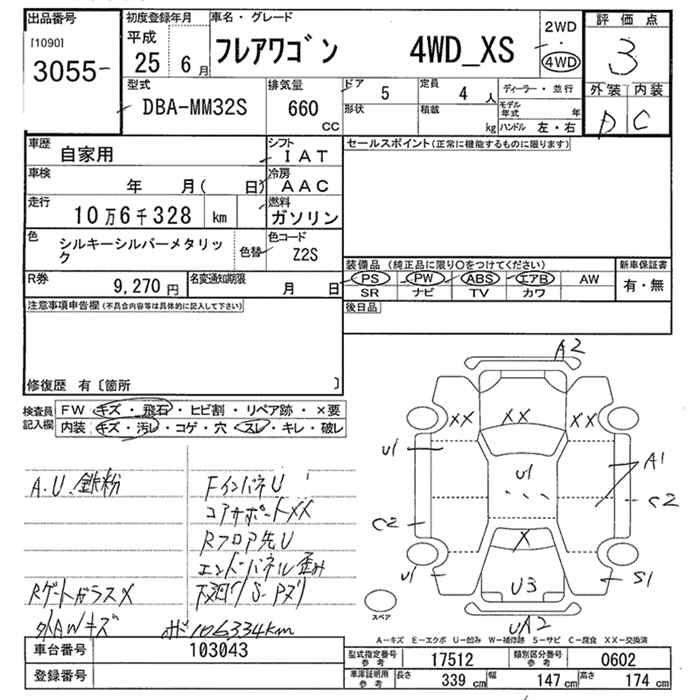 出品番号
[1090]
3055-
初度登録年月
平成
25 6月
車名・グレード
フレアワゴン 4WD_XS
2WD
・
4WD
評価点
3
外装 内装
D C
型式
DBA-MM32S
排気量
660
cc
ドア 5
定員 4人
形状
積載 kg
ディーラー・並行
モデル年式 年
ハンドル 左・右
車歴
自家用
シフト
IAT
車検
年 月( 日)
冷房
AAC
走行
10万6千328 km
燃料
ガソリン
色
シルキーシルバーメタリック
色替
色コード
Z2S
R券
9,270円
名変通知期限
月 日
セールスポイント(正常に機能するものに限ります)
装備品(純正品に限り○をつけてください)
PS PW ABS エアB AW
SR ナビ TV カワ
新車保証書
有・無
後日品
注意事項申告欄(不具合内容等は具体的に記入して下さい)
修復歴 有〔箇所 〕
検査員
記入欄
FW キズ・飛石・ヒビ割・リペア跡・×要
内装 キズ・汚レ・コゲ・穴・スレ・キレ・破レ
A.U.鉄粉
FインパネU
コアサポートXX
Rフロア先U
エンドパネル歪み
RゲートガラスX
下廻り S・Pズリ
外AWキズ
ボド 106334km
A2
XX
XX
XX
U1
U1
A1
C2
C2
X
U1
U3
S1
UA2
スペア
A-キズ E-エクボ U-凹み W-補修跡 S-サビ C-腐食 XX-交換済
車台番号
103043
登録番号
型式指定番号
参考
17512
類別区分番号
参考
0602
車庫証明用
参考
長さ 339 cm
幅 147 cm
高さ 174 cm